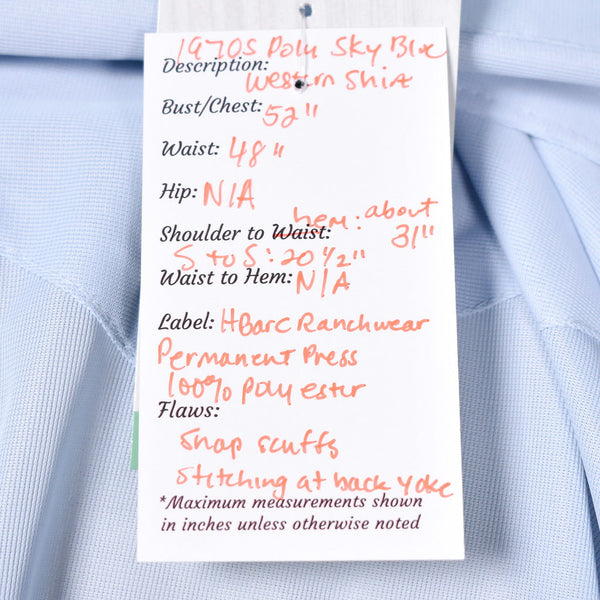 1970s Poly Sky Blue
Description:
Western Shirt
Bust/Chest: 52"
Waist: 48"
Hip: N/A
hem: about
Shoulder to Waist: 31"
S to S: 20 1/2"
Waist to Hem: N/A
Label: HBarC Ranchwear
Permanent Press
100% Polyester
Flaws:
Snap scuffs
Stitching at back yoke
*Maximum measurements shown
in inches unless otherwise noted